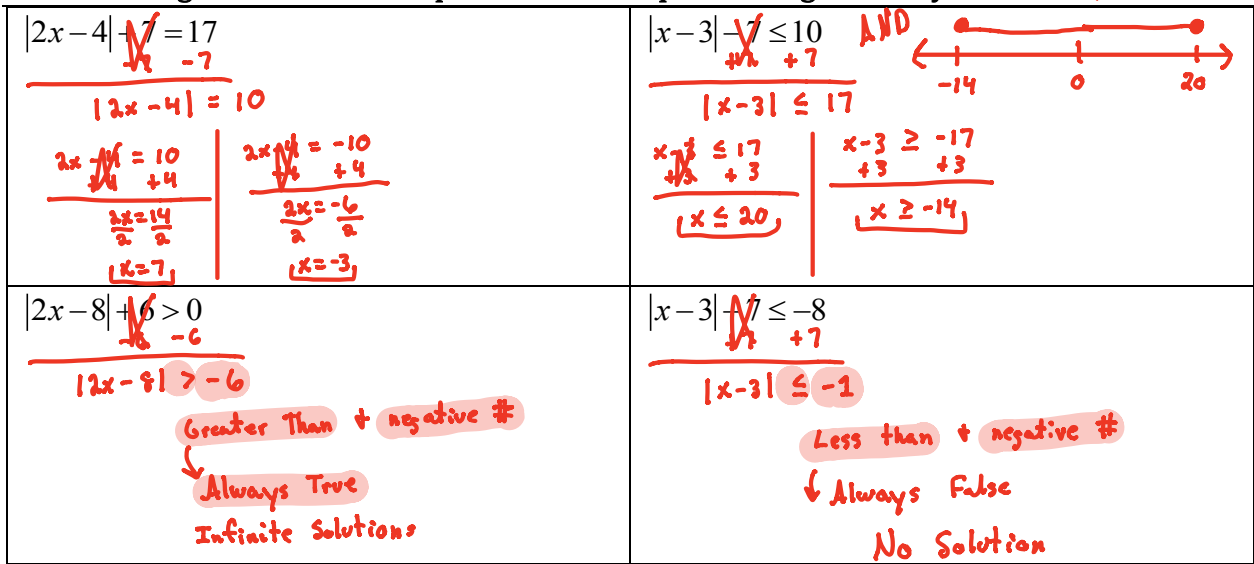 |2x−4|+7=17
-7 -7
|2x-4| = 10
2x-4 = 10
+4 +4
2x=14
2 2
x=7
2x-4 = -10
+4 +4
2x=-6
2 2
x=-3
|x−3|−7≤10
+7 +7
|x-3| ≤ 17
x-3 ≤ 17
+3 +3
x ≤ 20
x-3 ≥ -17
+3 +3
x ≥ -14
AND
-14 0 20
|2x−8|+6>0
-6 -6
|2x-8| > -6
Greater Than + negative #
Always True
Infinite Solutions
|x−3|−7≤−8
+7 +7
|x-3| ≤ -1
Less than + negative #
Always False
No Solution